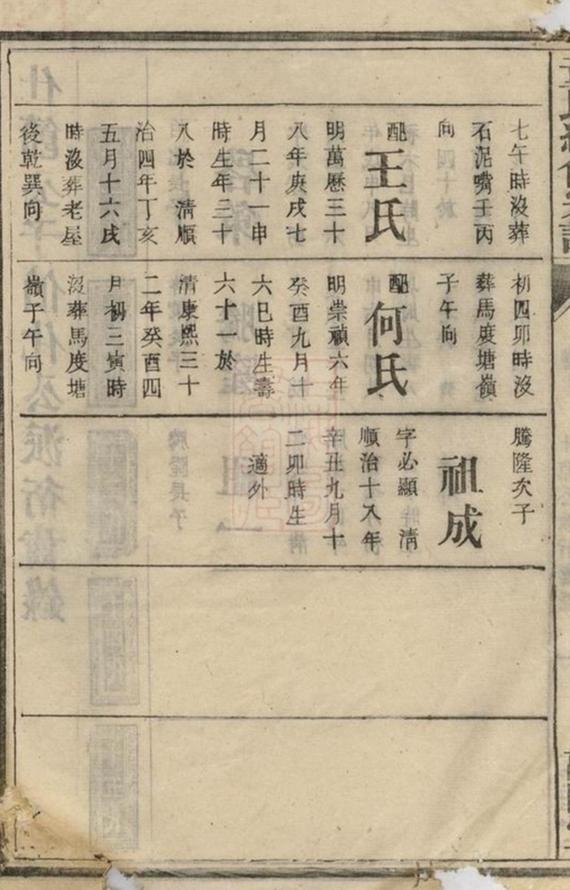 七午時沒葬
石泥嘴壬丙
向
配王氏
明萬歷三十
八年庚戌七
月二十一申
時生年三十
八於 清順
治四年丁亥
五月十六戌
時沒葬老屋
後乾巽向
初四卯時沒
葬馬度塘嶺
子午向
配何氏
明崇禎六年
癸酉九月十
六巳時生壽
六十一於
清康熙三十
二年癸酉四
月初三寅時
沒葬馬度塘
嶺子午向
騰隆次子
祖成
字必顯 清
順治十八年
辛丑九月十
二卯時生
適外